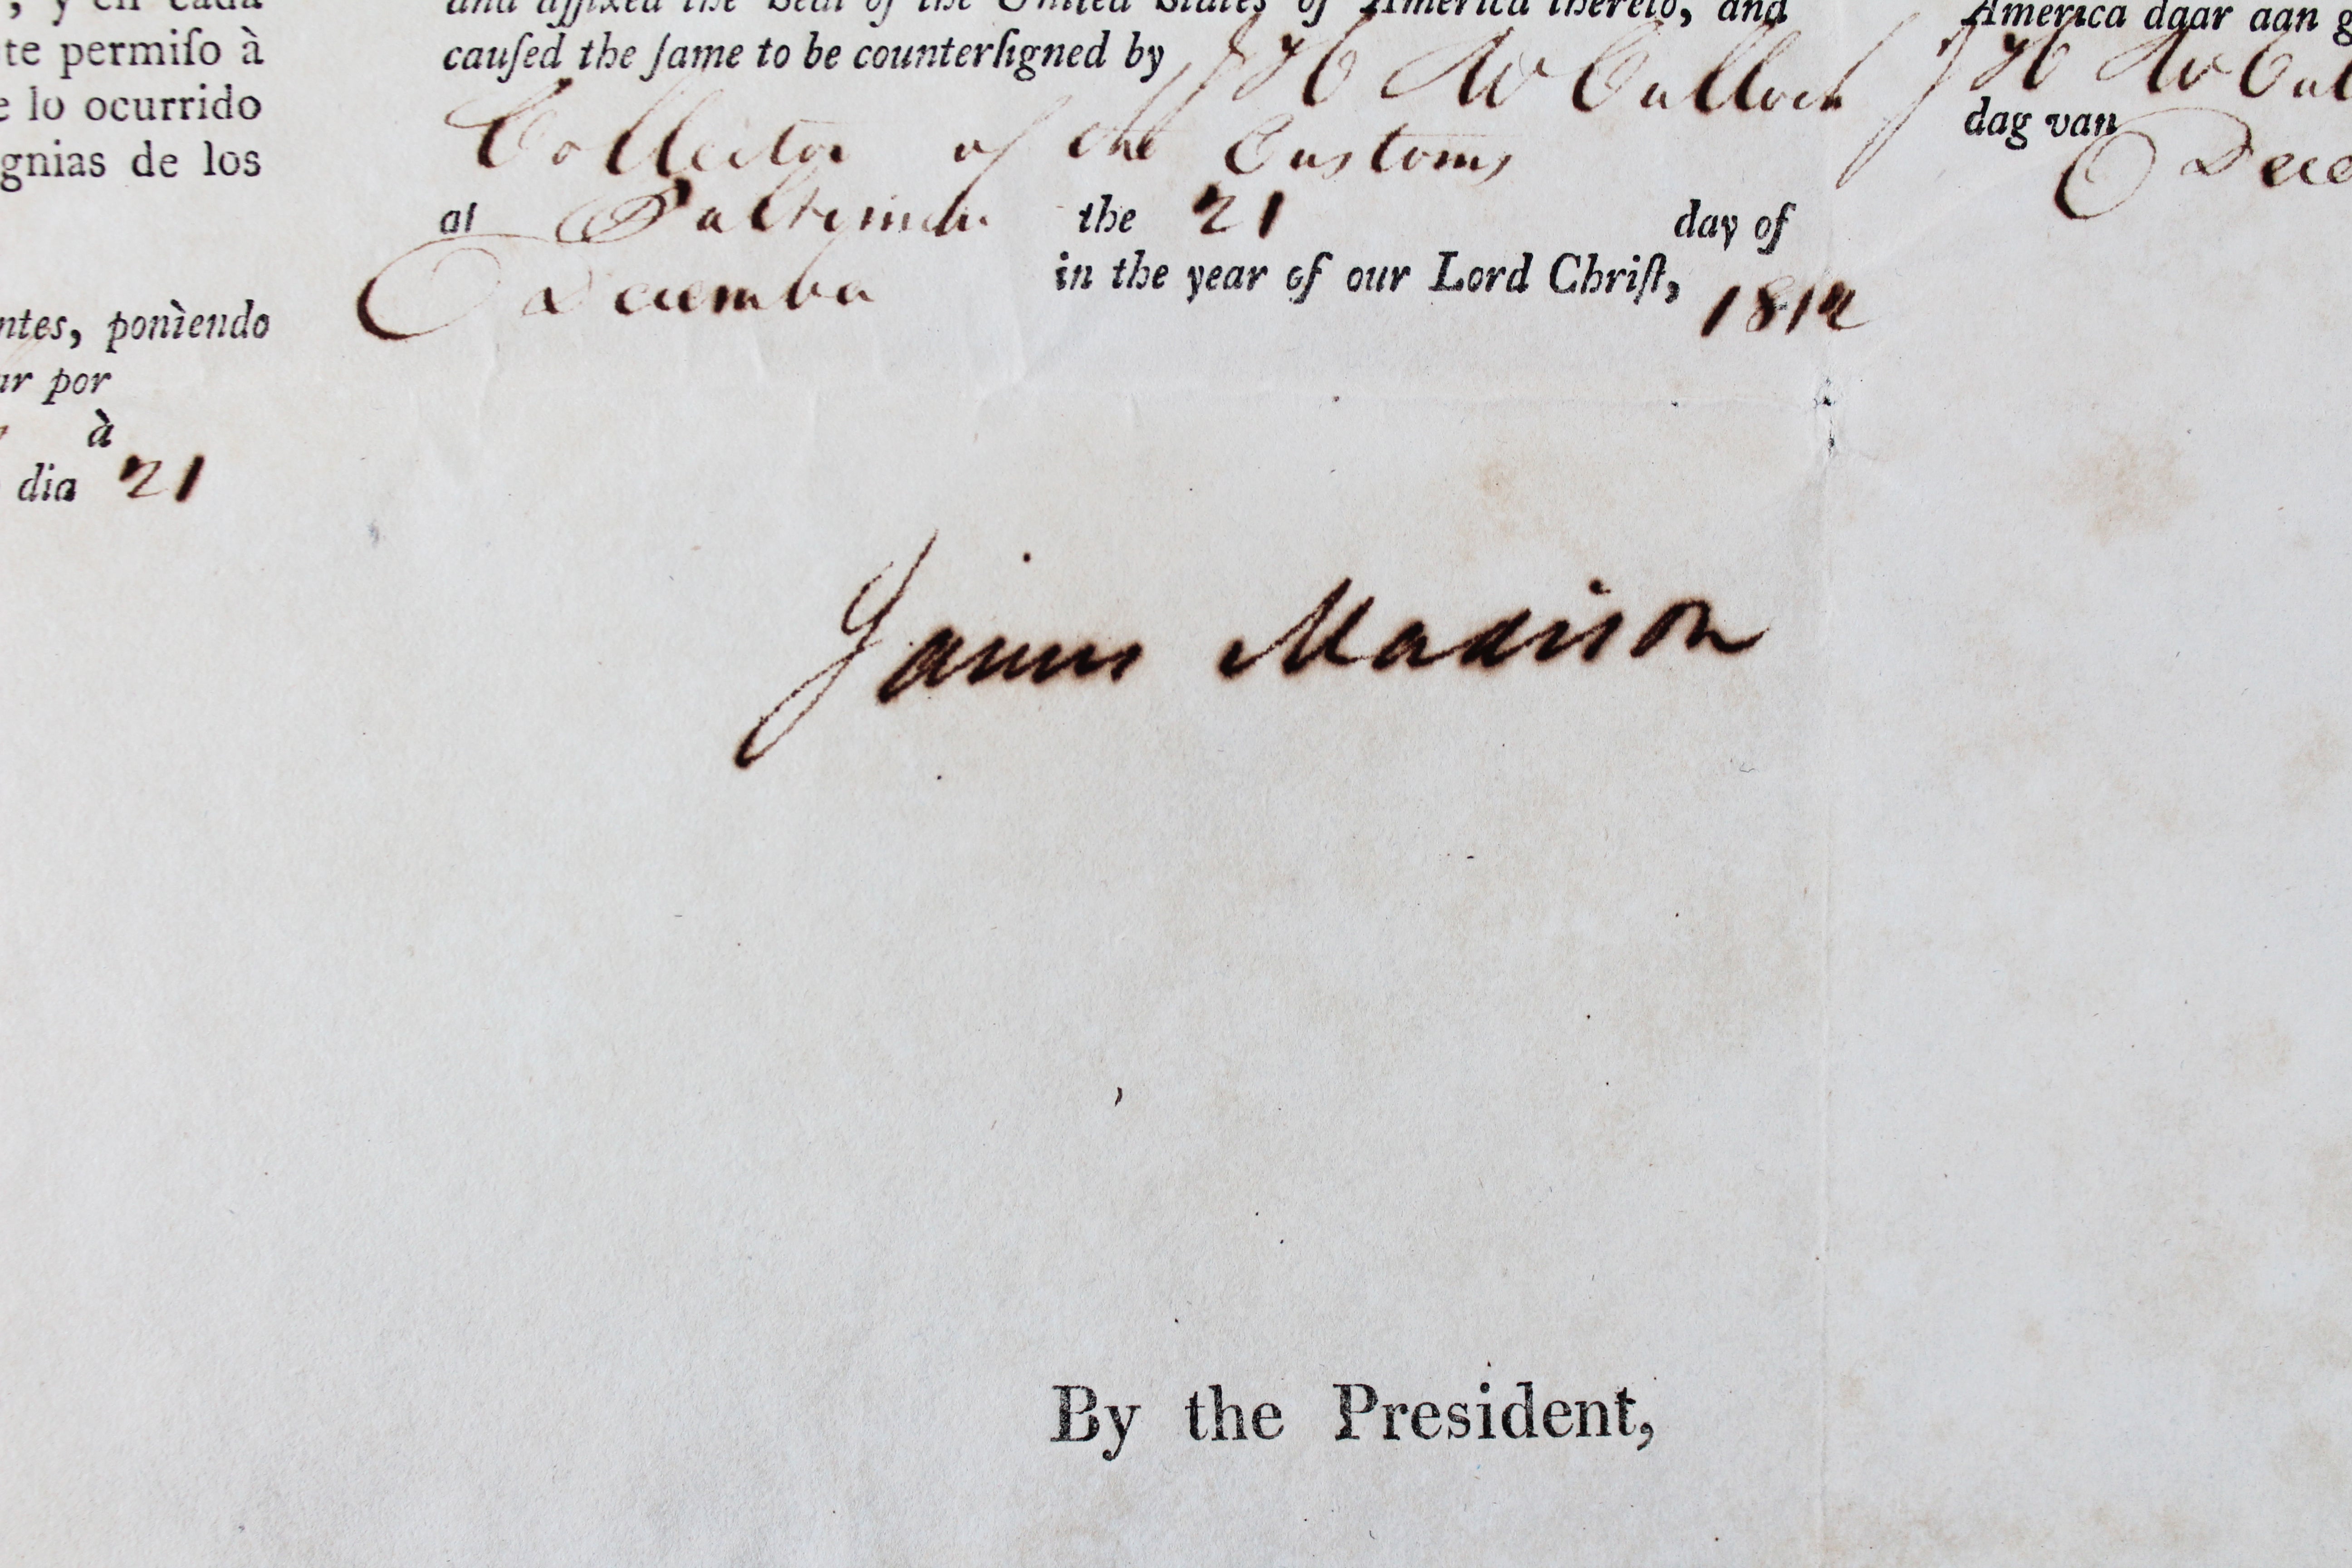 , y en cada
te permiſo à
e lo ocurrido
gnias de los
ntes, poniendo
ar por
à
dia 21
and affixed the Seal of the United States of America thereto, and
cauſed the ſame to be counterſigned by Jas H McCulloch
Collector of the Customs
at Baltimore the 21 day of
December in the year of our Lord Chriſt, 1812
James Madison
By the President,
America daar aan g
Jas H McCul
dag van
Dece